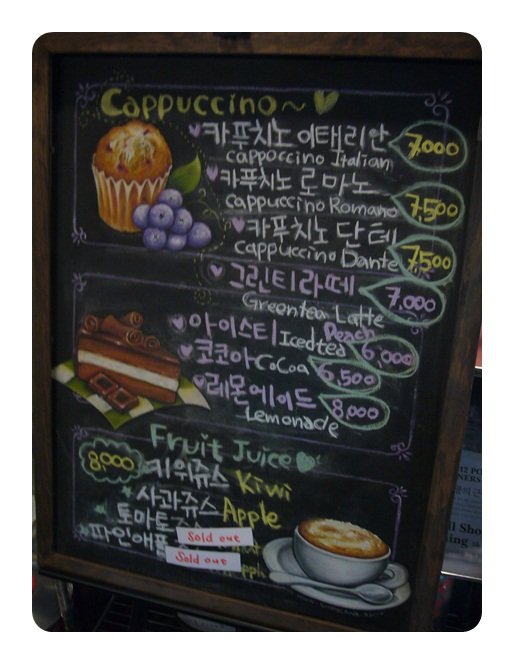 Cappuccino~
카푸치노 이태리안 7.000
cappoccino Italian
카푸치노 로마노 7.500
cappuccino Romano
카푸치노 단테 7.500
cappuccino Dante
그린티라떼 7,000
Greentea Latte
아이스티 Icedtea Peach 6,000
코코아 CoCoa 6,500
레몬에이드 8,000
Lemonade
Fruit Juice
8,000 키위쥬스 Kiwi
사과쥬스 Apple
토마토 Sold out
파인애플 Sold out